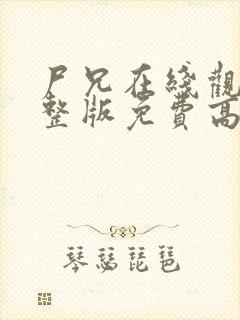 尸兄在綫觀
整版免費高
琴瑟琵琶